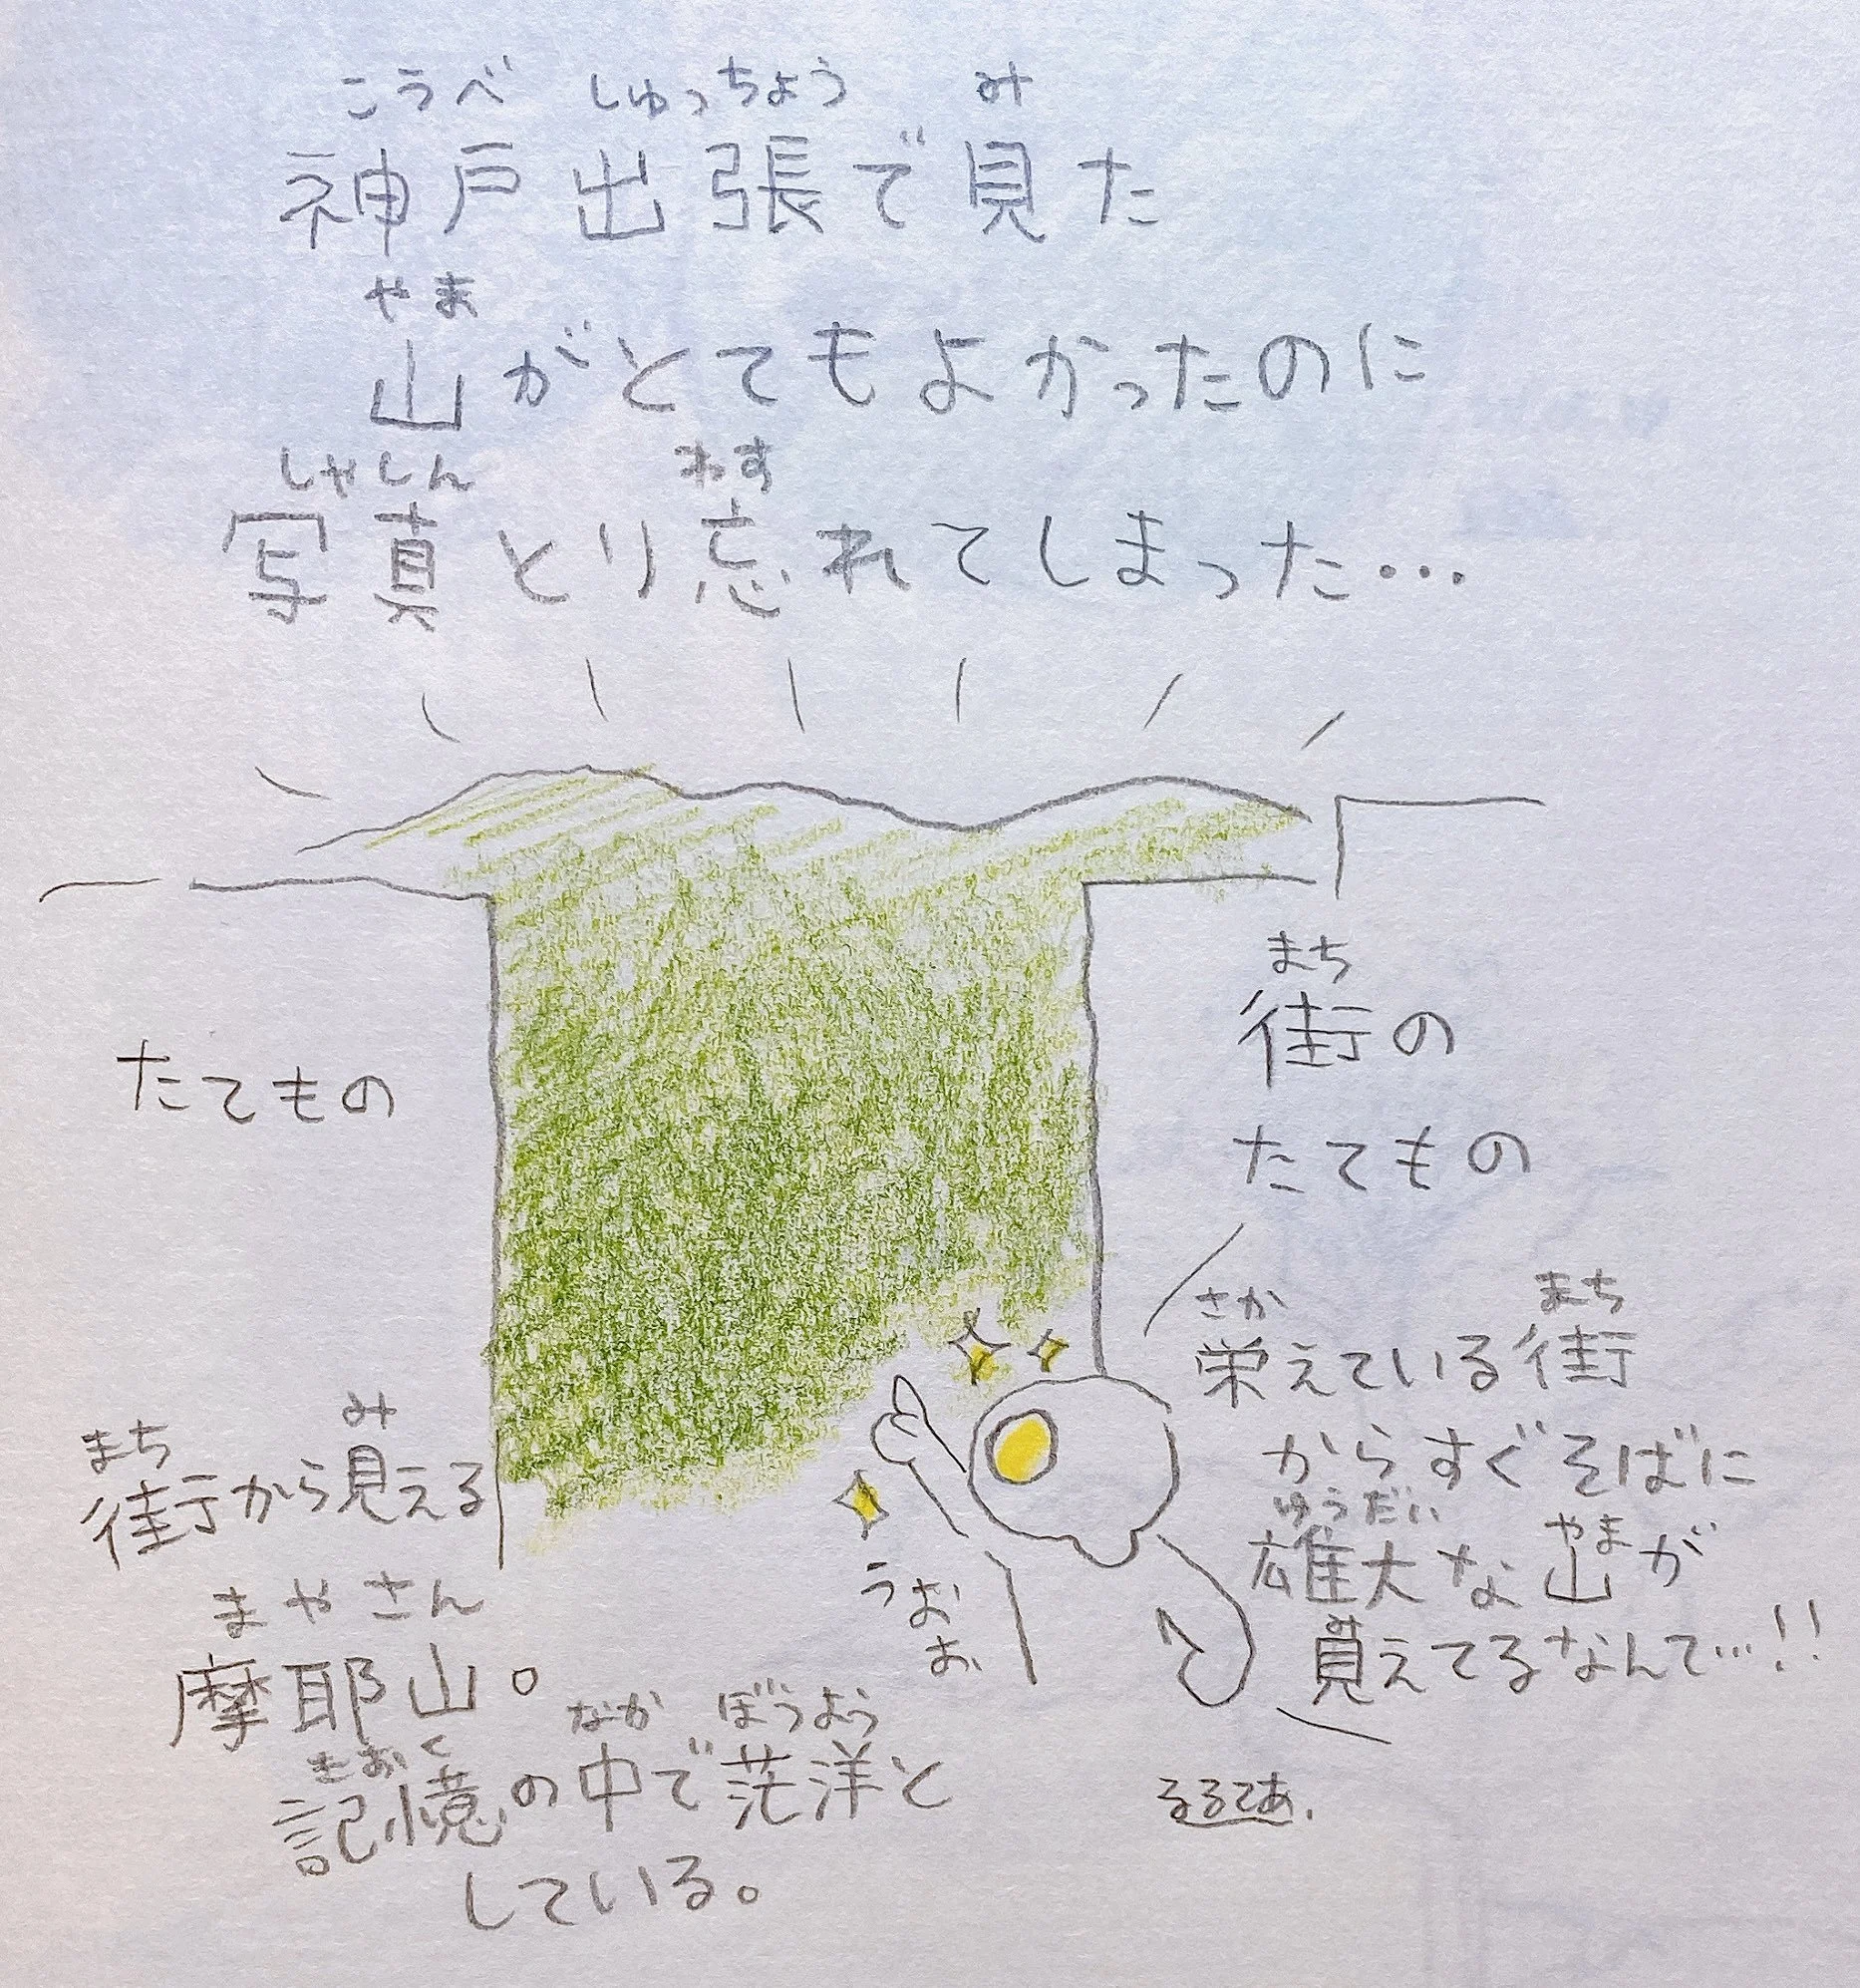 こうべ しゅっちょう み
神戸出張で見た
やま
山がとてもよかったのに
しゃしん わす
写真とり忘れてしまった…
たてもの
まち
街の
たてもの
さか まち
栄えている街
からすぐそばに
ゆうだい やま
雄大な山が
み
見えてるなんて…!!
うおお
まち み
街から見える
まやさん
摩耶山。
きおく なか ぼうよう
記憶の中で茫洋と
している。
るるてあ.